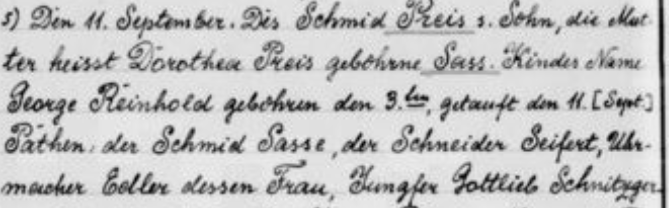 5) Den 11. September. Des Schmid Preis s. Sohn, die Mut-
ter heisst Dorothea Preis gebohrne Sass. Kindes Name
George Reinhold gebohren den 9.ten, getauft den 11. [Sept.]
Pathen: der Schmid Sasse, der Schneider Seifert, Uhr-
macher Edller dessen Frau, Jungfer Gottlieb Schnitzger